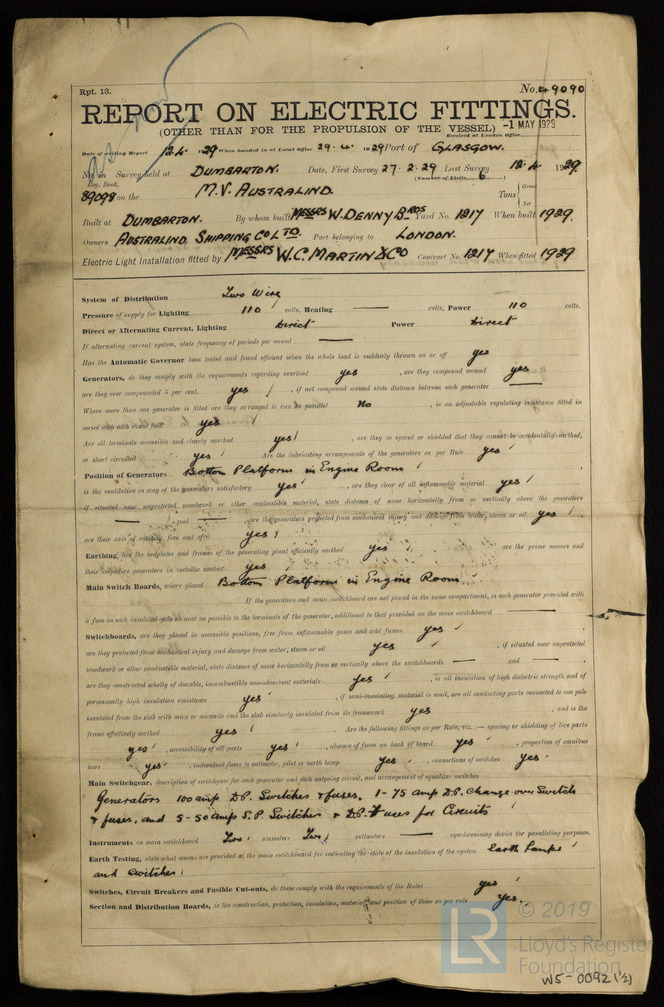 Rpt. 13.
No. 49090
REPORT ON ELECTRIC FITTINGS.
(OTHER THAN FOR THE PROPULSION OF THE VESSEL)
-1 MAY 1929
Received at London Office
Date of writing Report 12.4.1929 When handed in at Local Office 29.4.1929 Port of GLASGOW.
No. in Survey held at DUMBARTON. Date, First Survey 27.2.29 Last Survey 12.4 1929.
Reg. Book. (Number of Visits 6)
89098 on the M.V. AUSTRALIND. Tons Gross Net
Built at DUMBARTON. By whom built MESSRS W. DENNY & BROS Yard No. 1217 When built 1929.
Owners AUSTRALIND SHIPPING CO LTD. Port belonging to LONDON.
Electric Light Installation fitted by MESSRS W.C. MARTIN & CO Contract No. 1217 When fitted 1929
System of Distribution Two Wire
Pressure of supply for Lighting 110 volts, Heating — volts, Power 110 volts.
Direct or Alternating Current, Lighting Direct Power Direct
If alternating current system, state frequency of periods per second —
Has the Automatic Governor been tested and found efficient when the whole load is suddenly thrown on or off yes
Generators, do they comply with the requirements regarding overload yes, are they compound wound yes
are they over compounded 5 per cent. yes, if not compound wound state distance between each generator —
Where more than one generator is fitted are they arranged to run in parallel No, is an adjustable regulating resistance fitted in
series with each shunt field yes
Are all terminals accessible and clearly marked yes, are they so spaced or shielded that they cannot be accidentally earthed,
or short circuited yes Are the lubricating arrangements of the generators as per Rule yes
Position of Generators Bottom Platform in Engine Room
is the ventilation in way of the generators satisfactory yes, are they clear of all inflammable material yes
if situated near unprotected woodwork or other combustible material, state distance of same horizontally from or vertically above the generators
— and —, are the generators protected from mechanical injury and damage from water, steam or oil yes,
are their axes of rotation fore and aft yes
Earthing, are the bedplates and frames of the generating plant efficiently earthed yes are the prime movers and
their respective generators in metallic contact yes
Main Switch Boards, where placed Bottom Platform in Engine Room
If the generators and main switchboard are not placed in the same compartment, is each generator provided with
a fuse on each insulated pole as near as possible to the terminals of the generator, additional to that provided on the main switchboard —
Switchboards, are they placed in accessible positions, free from inflammable gases and acid fumes yes
are they protected from mechanical injury and damage from water, steam or oil yes, if situated near unprotected
woodwork or other combustible material, state distance of same horizontally from or vertically above the switchboards — and —,
are they constructed wholly of durable, incombustible non-absorbent materials yes, is all insulation of high dielectric strength and of
permanently high insulation resistance yes, if semi-insulating material is used, are all conducting parts connected to one pole
insulated from the slab with mica or micanite and the slab similarly insulated from its framework yes, and is the
frame effectively earthed yes Are the following fittings as per Rule, viz.:— spacing or shielding of live parts
yes, accessibility of all parts yes, absence of fuses on back of board yes, proportion of omnibus
bars yes, individual fuses to voltmeter, pilot or earth lamp yes, connections of switches yes
Main Switchgear, description of switchgear for each generator and each outgoing circuit, and arrangement of equalizer switches
Generators 100 amp D.P. Switches & fuses. 1- 75 amp D.P. Change over Switch
& fuses, and 5-50 amp S.P. Switches & D.P. Fuses for Circuits
Instruments on main switchboard Two ammeters Two voltmeters — synchronising device for paralleling purposes.
Earth Testing, state what means are provided at the main switchboard for indicating the state of the insulation of the system Earth Lamps
and Switches.
Switches, Circuit Breakers and Fusible Cut-outs, do these comply with the requirements of the Rules yes
Section and Distribution Boards, is the construction, protection, insulation, material and position of these as per rule yes.
LR
© 2019
Lloyd's Register
Foundation
W5-0092 (1/2)